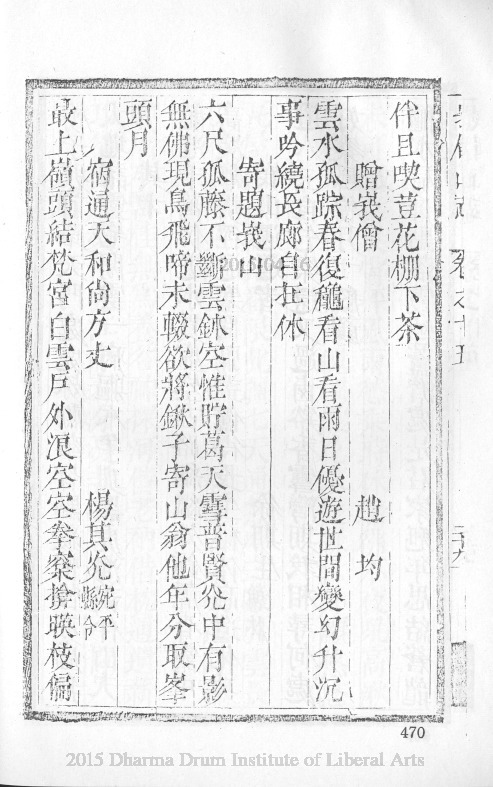 伴且喫荳花棚下茶
贈峩僧 趙均
雲水孤踪春復龝看山看雨日優遊世間變幻升沉
事吟繞長廊自在休
寄題峩山
六尺孤藤不斷雲鉢空惟貯葛天雪普賢光中有影
無佛現鳥飛啼未輟欲將鍬子寄山翁他年分取峯
頭月
宿通天和尚方丈 楊其光宛平縣令
最上嶺頭結梵宮白雲戶外浪空空拳案擠暎枝偏
卷之十五
470
2015 Dharma Drum Institute of Liberal Arts